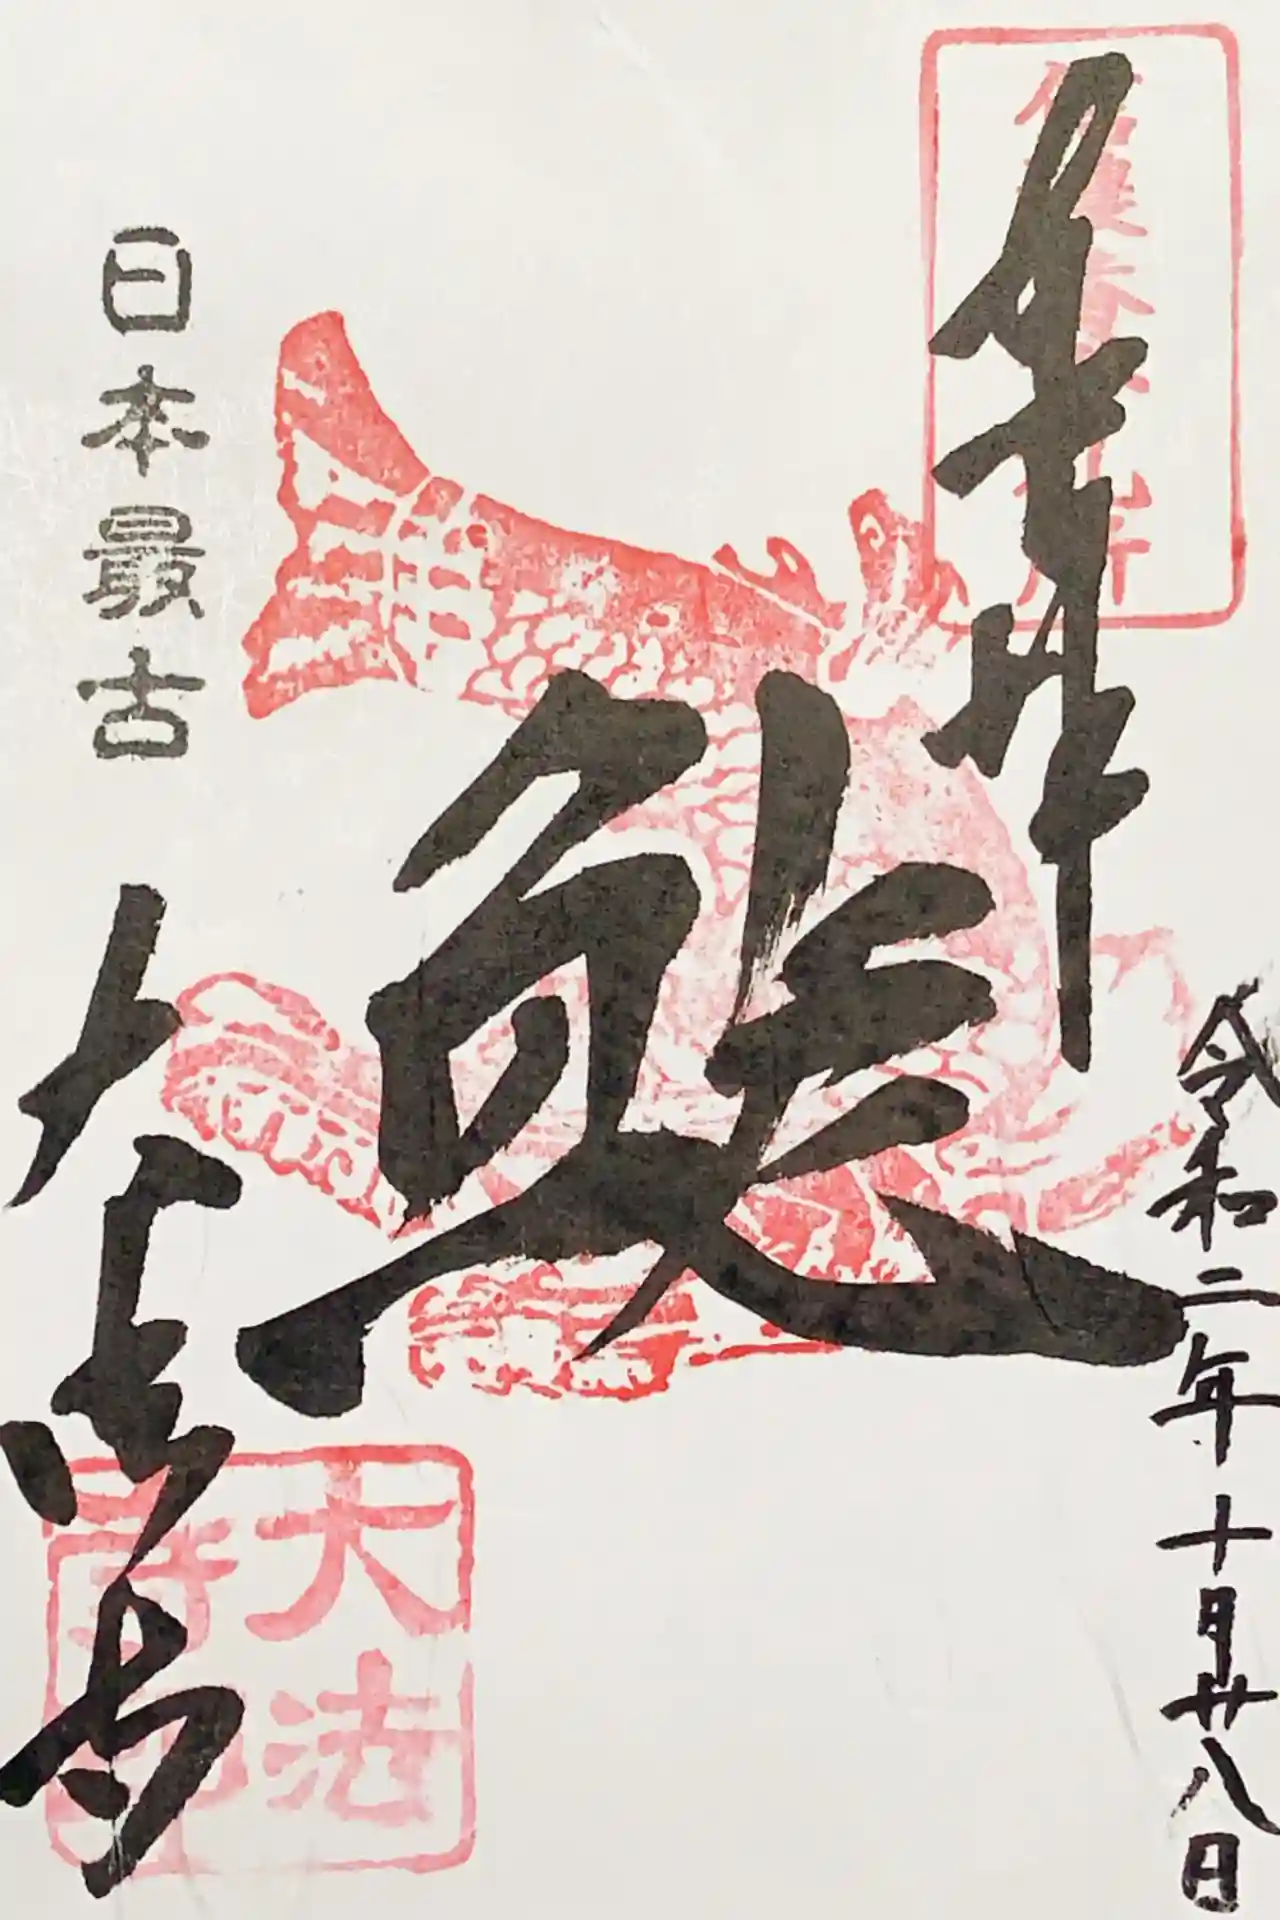 奉拝
令和二年十月廿八日
鯱
日本最古
大法寺
大法
寺印